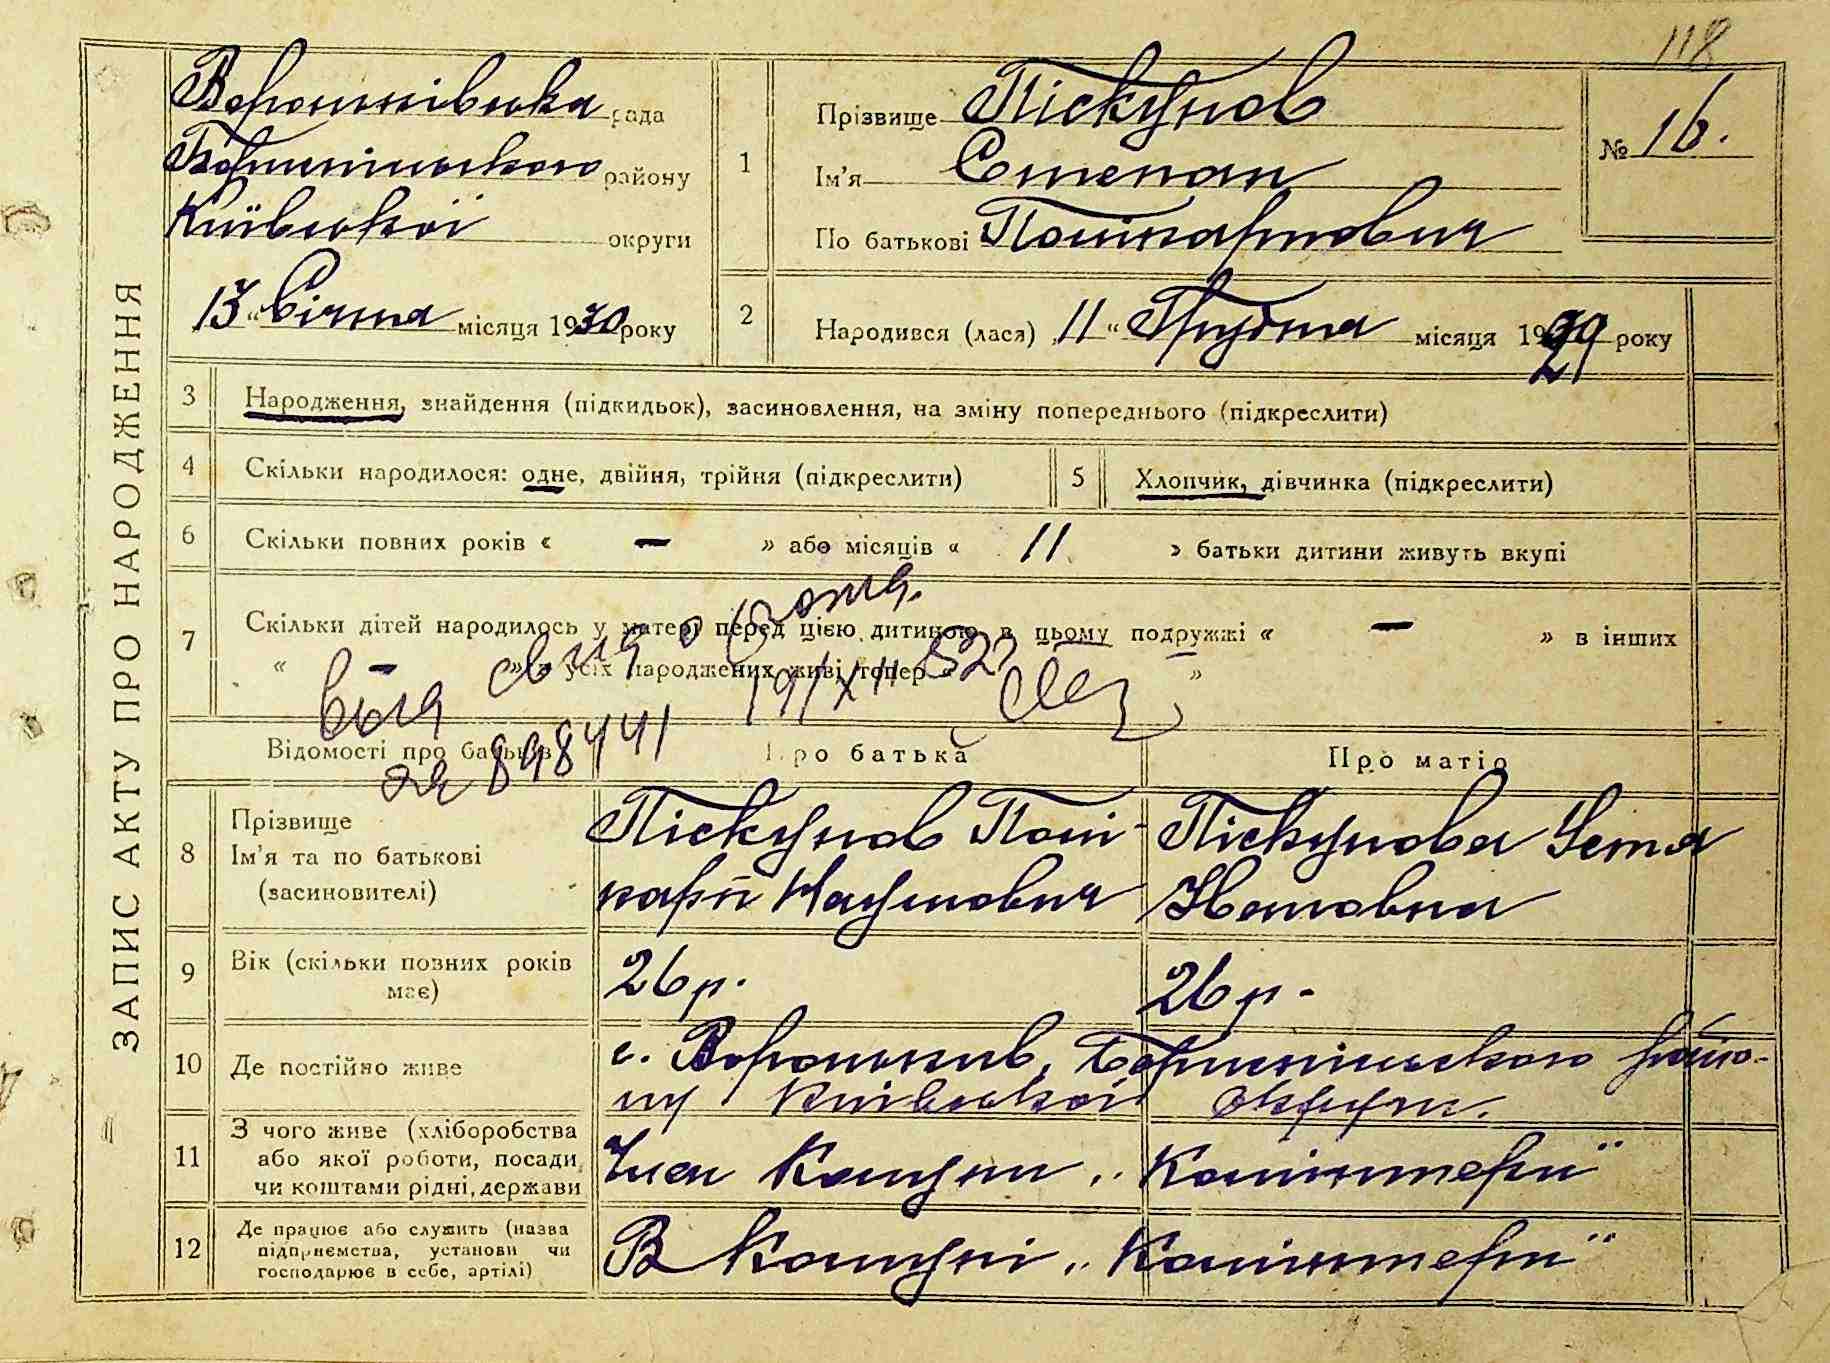 118
ЗАПИС АКТУ ПРО НАРОДЖЕННЯ
Вороньківська рада
Бориспільського району
Київської округи
13 „ Січня місяця 1930 року
1
Прізвище Піскунов
Ім'я Степан
По батькові Полікарпович
№ 16.
2
Народився (лася) 11 „ Грудня місяця 1929 року
3 Народження, знайдення (підкидьок), засиновлення, на зміну попереднього (підкреслити)
4 Скільки народилося: одне, двійня, трійня (підкреслити)
5 Хлопчик, дівчинка (підкреслити)
6 Скільки повних років « — » або місяців « 11 » батьки дитини живуть вкупі
7 Скільки дітей народилось у матері перед цією дитиною в цьому подружжі « — » в інших
« — » з усіх народжених живі тепер « »
898441
Відомості про батьків Про батька Про матір
8 Прізвище
Ім'я та по батькові
(засиновителі)
Піскунов Полі-
карп Наумович
Піскунова Устя
9 Вік (скільки повних років
має)
26 р.
26 р.
10 Де постійно живе
с. Вороньків, Бориспільського райо-
ну Київської округи.
11 З чого живе (хліборобства
або якої роботи, посади,
чи коштами рідні, держави
Член Комуни „Комінтерн"
12 Де працює або служить (назва
підприємства, установи чи
господарює в себе, артілі)
В Комуні „Комінтерн"